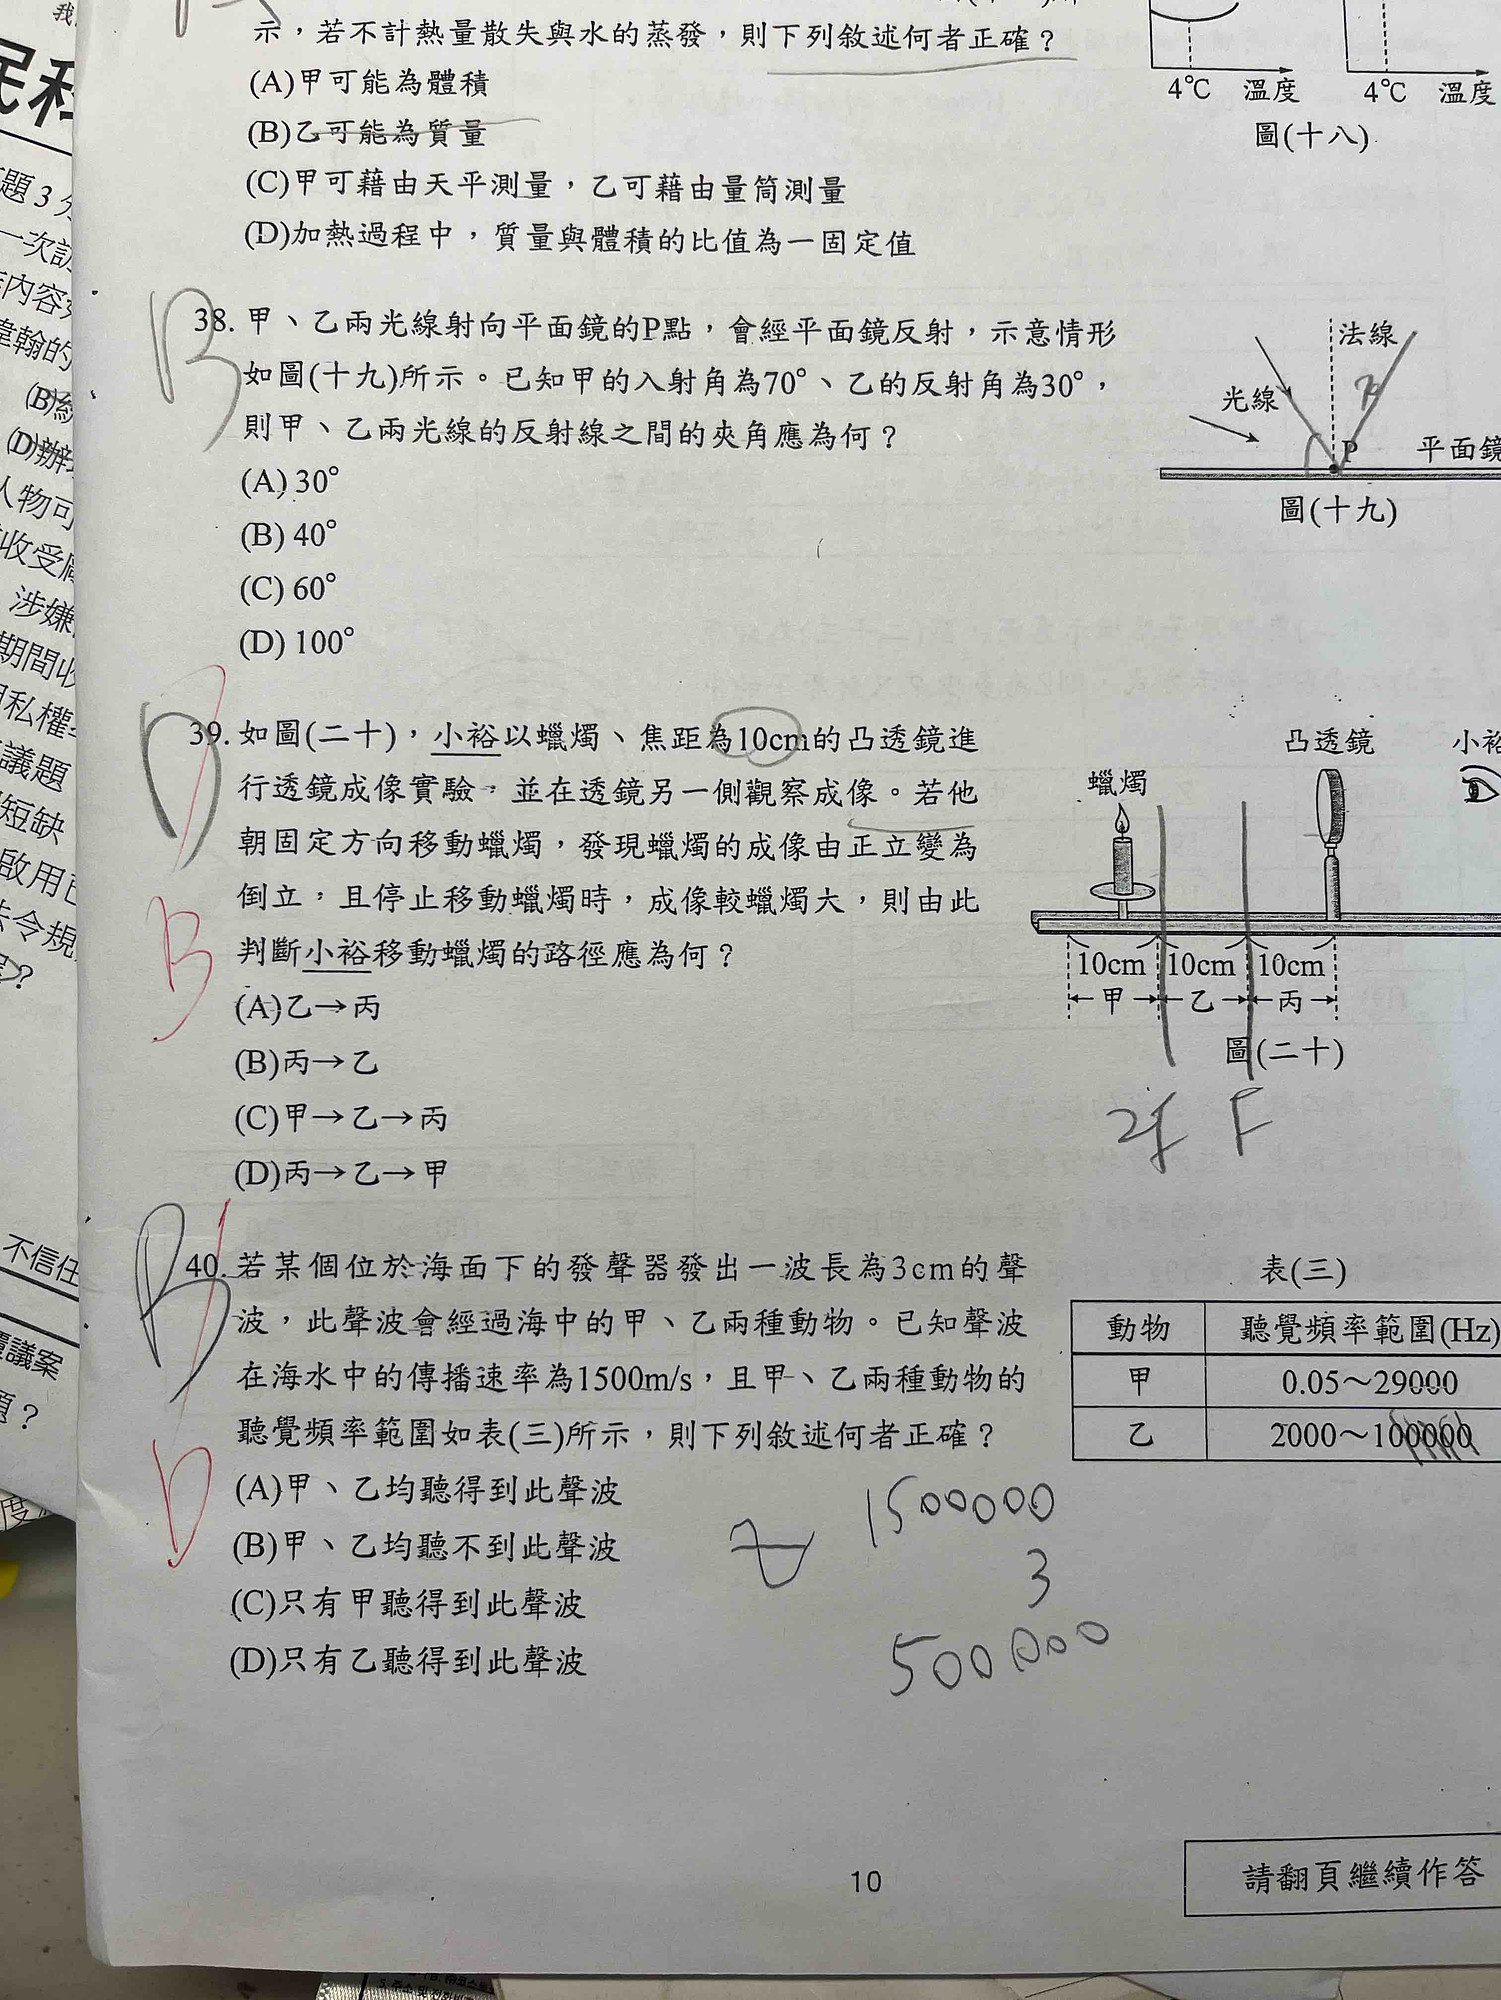 示，若不計熱量散失與水的蒸發，則下列敘述何者正確？
(A)甲可能為體積
(B)乙可能為質量
(C)甲可藉由天平測量，乙可藉由量筒測量
(D)加熱過程中，質量與體積的比值為一固定值
4℃ 溫度
4℃ 溫度
圖(十八)
B
38. 甲、乙兩光線射向平面鏡的P點，會經平面鏡反射，示意情形
如圖(十九)所示。已知甲的入射角為70°、乙的反射角為30°，
則甲、乙兩光線的反射線之間的夾角應為何？
(A) 30°
(B) 40°
(C) 60°
(D) 100°
法線
光線
P
平面鏡
圖(十九)
D
39. 如圖(二十)，小裕以蠟燭、焦距為10cm的凸透鏡進
行透鏡成像實驗，並在透鏡另一側觀察成像。若他
朝固定方向移動蠟燭，發現蠟燭的成像由正立變為
倒立，且停止移動蠟燭時，成像較蠟燭大，則由此
判斷小裕移動蠟燭的路徑應為何？
B
(A)乙→丙
(B)丙→乙
(C)甲→乙→丙
(D)丙→乙→甲
凸透鏡
蠟燭
10cm 10cm 10cm
甲 乙 丙
圖(二十)
2f F
B
40. 若某個位於海面下的發聲器發出一波長為3cm的聲
波，此聲波會經過海中的甲、乙兩種動物。已知聲波
在海水中的傳播速率為1500m/s，且甲、乙兩種動物的
聽覺頻率範圍如表(三)所示，則下列敘述何者正確？
D
(A)甲、乙均聽得到此聲波
(B)甲、乙均聽不到此聲波
(C)只有甲聽得到此聲波
(D)只有乙聽得到此聲波
表(三)
動物 聽覺頻率範圍(Hz)
甲 0.05～29000
乙 2000～100000
1500000
3
500000
10
請翻頁繼續作答
不信任